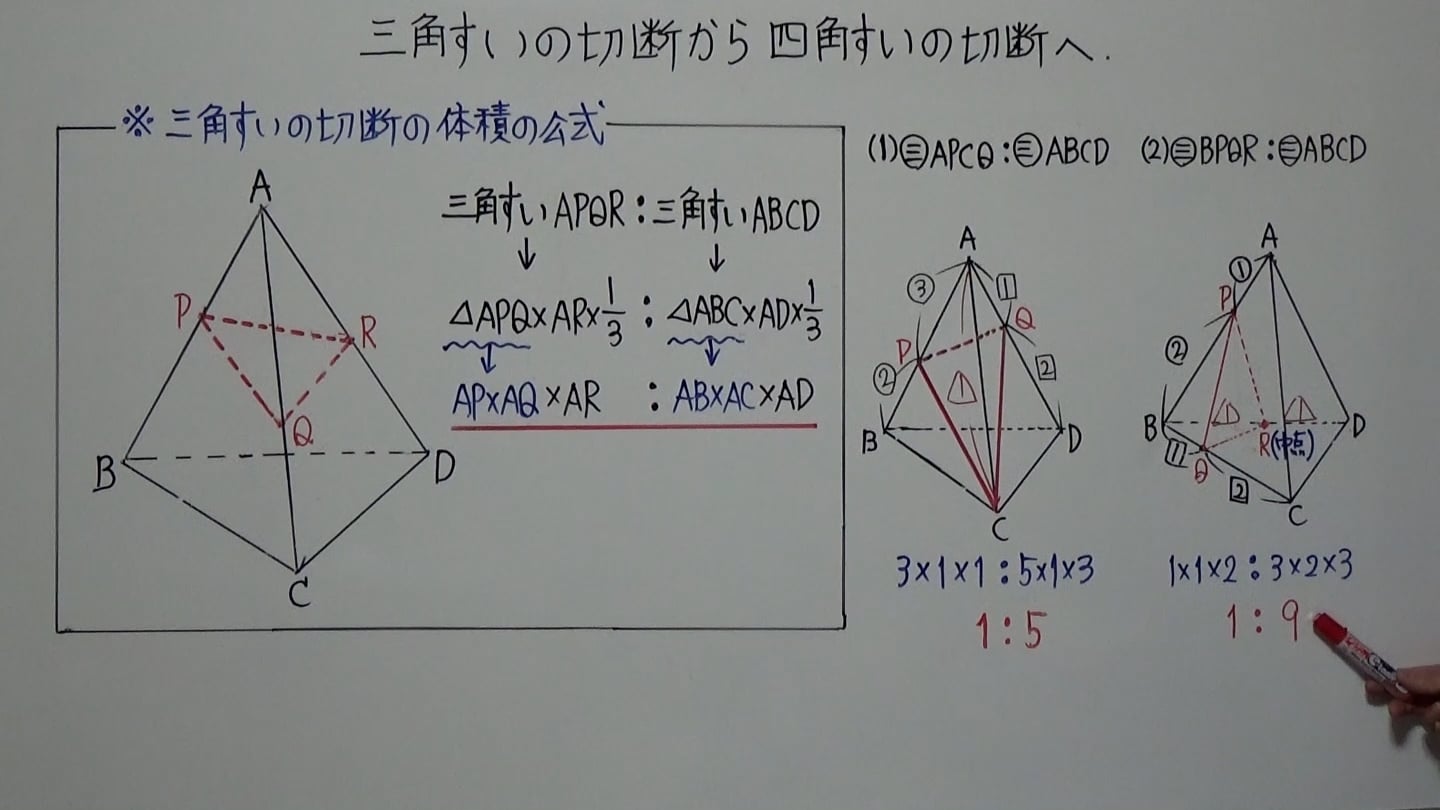 三角すいの切断から四角すいの切断へ.
※三角すいの切断の体積の公式
A
P
R
Q
B
D
C
三角すいAPQR:三角すいABCD
↓ ↓
△APQ×AR×1/3 : △ABC×AD×1/3
↓ ↓
AP×AQ×AR : AB×AC×AD
(1)㊂APCQ:㊂ABCD
A
③
1
Q
P
②
△1
2
B
D
C
3×1×1:5×1×3
1:5
(2)㊂BPQR:㊂ABCD
A
①
P
②
B
△1
△1
D
R(中点)
1
Q
2
C
1×1×2:3×2×3
1:9